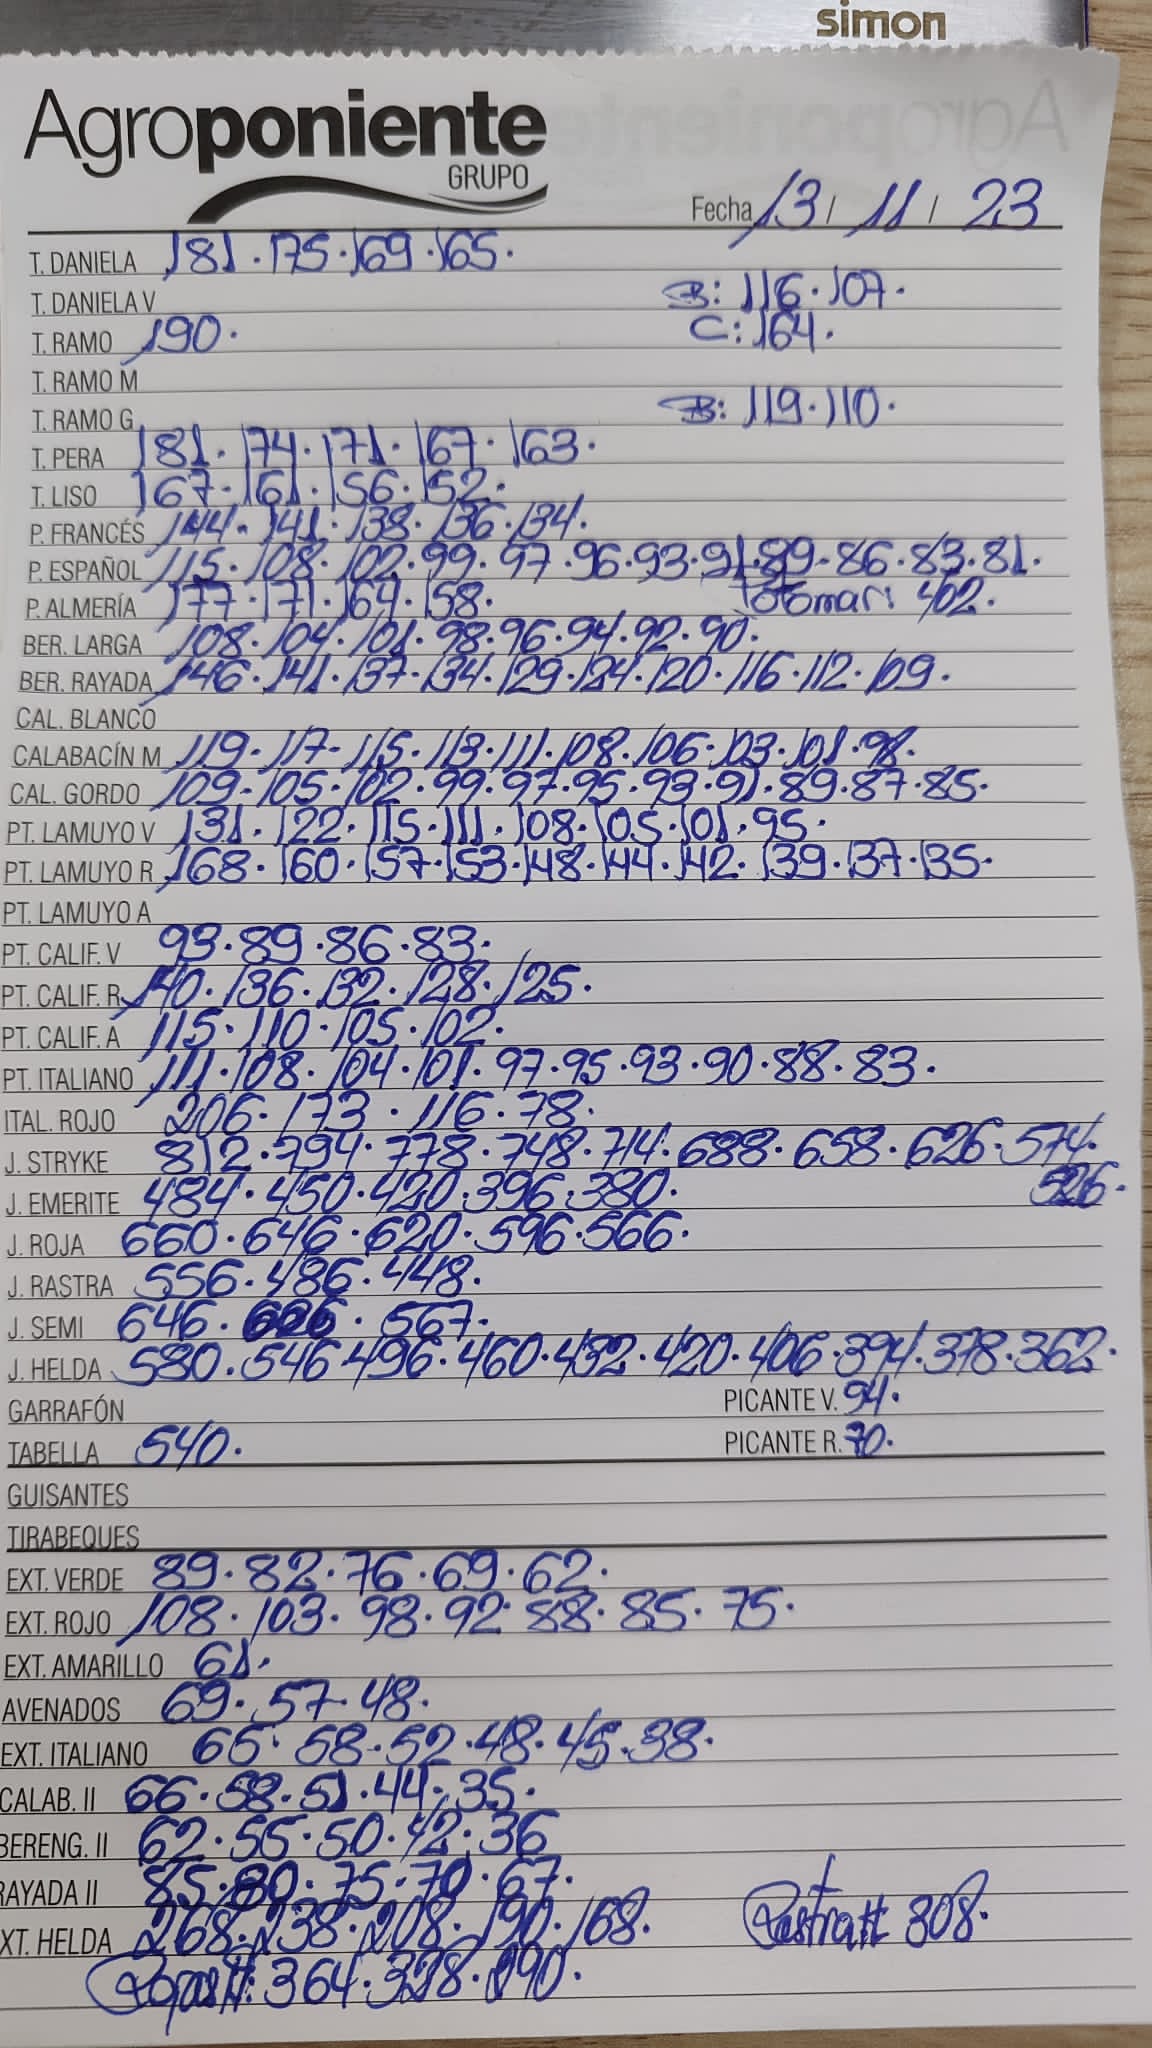 simon
Agroponiente
GRUPO
Fecha 13 / 11 / 23
T. DANIELA 181 · 175 · 169 · 165 ·
T. DANELA V B: 116 · 107 ·
T. RAMO 190 · C: 164 ·
T. RAMO M
T. RAMO G B: 119 · 110 ·
T. PERA 181 · 174 · 171 · 167 · 163 ·
T. LISO 167 · 161 · 156 · 152 ·
P. FRANCÉS 144 · 141 · 138 · 136 · 134 ·
P. ESPAÑOL 115 · 108 · 102 · 99 · 97 · 96 · 93 · 91 · 89 · 86 · 83 · 81 ·
P. ALMERÍA 177 · 171 · 164 · 158 · Totomari 402 ·
BER. LARGA 108 · 104 · 101 · 98 · 96 · 94 · 92 · 90 ·
BER. RAYADA 146 · 141 · 137 · 134 · 129 · 124 · 120 · 116 · 112 · 109 ·
CAL. BLANCO
CALABACÍN M 119 - 117 - 115 · 113 · 111 · 108 · 106 · 103 · 101 · 98 ·
CAL. GORDO 109 · 105 · 102 · 99 · 97 · 95 · 93 · 91 · 89 · 87 · 85 ·
PT. LAMUYO V 131 · 122 · 115 · 111 · 108 · 105 · 101 · 95 ·
PT. LAMUYO R 168 · 160 · 157 · 153 · 148 · 144 · 142 · 139 · 137 · 135 ·
PT. LAMUYO A
PT. CALIF. V 93 · 89 · 86 · 83 ·
PT. CALIF. R 140 · 136 · 132 · 128 · 125 ·
PT. CALIF. A 115 · 110 · 105 · 102 ·
PT. ITALIANO 111 · 108 · 104 · 101 · 97 · 95 · 93 · 90 · 88 · 83 ·
ITAL. ROJO 206 · 173 · 116 · 78 ·
J. STRYKE 812 · 794 · 778 · 748 · 714 · 688 · 658 · 626 · 574 ·
526 ·
J. EMERITE 484 · 450 · 420 · 396 · 380 ·
J. ROJA 660 · 646 · 620 · 596 · 566 ·
J. RASTRA 556 · 486 · 448 ·
J. SEMI 646 · 626 · 567 ·
J. HELDA 580 · 546 · 496 · 460 · 432 · 420 · 406 · 394 · 378 · 362 ·
GARRAFÓN PICANTE V. 94 ·
TABELLA 540 · PICANTE R. 70 ·
GUISANTES
TIRABEQUES
EXT. VERDE 89 · 82 · 76 · 69 · 62 ·
EXT. ROJO 108 · 103 · 98 · 92 · 88 · 85 · 75 ·
EXT. AMARILLO 61 ·
AVENADOS 69 · 57 · 48 ·
EXT. ITALIANO 65 · 58 · 52 · 48 · 45 · 38 ·
CALAB. II 66 · 58 · 51 · 44 · 35 ·
BERENG. II 62 · 55 · 50 · 42 · 36
RAYADA II 85 · 80 · 75 · 70 · 67 ·
XT. HELDA 268 · 238 · 208 · 190 · 168 · Rastra II 308 ·
364 · 328 · 290 ·